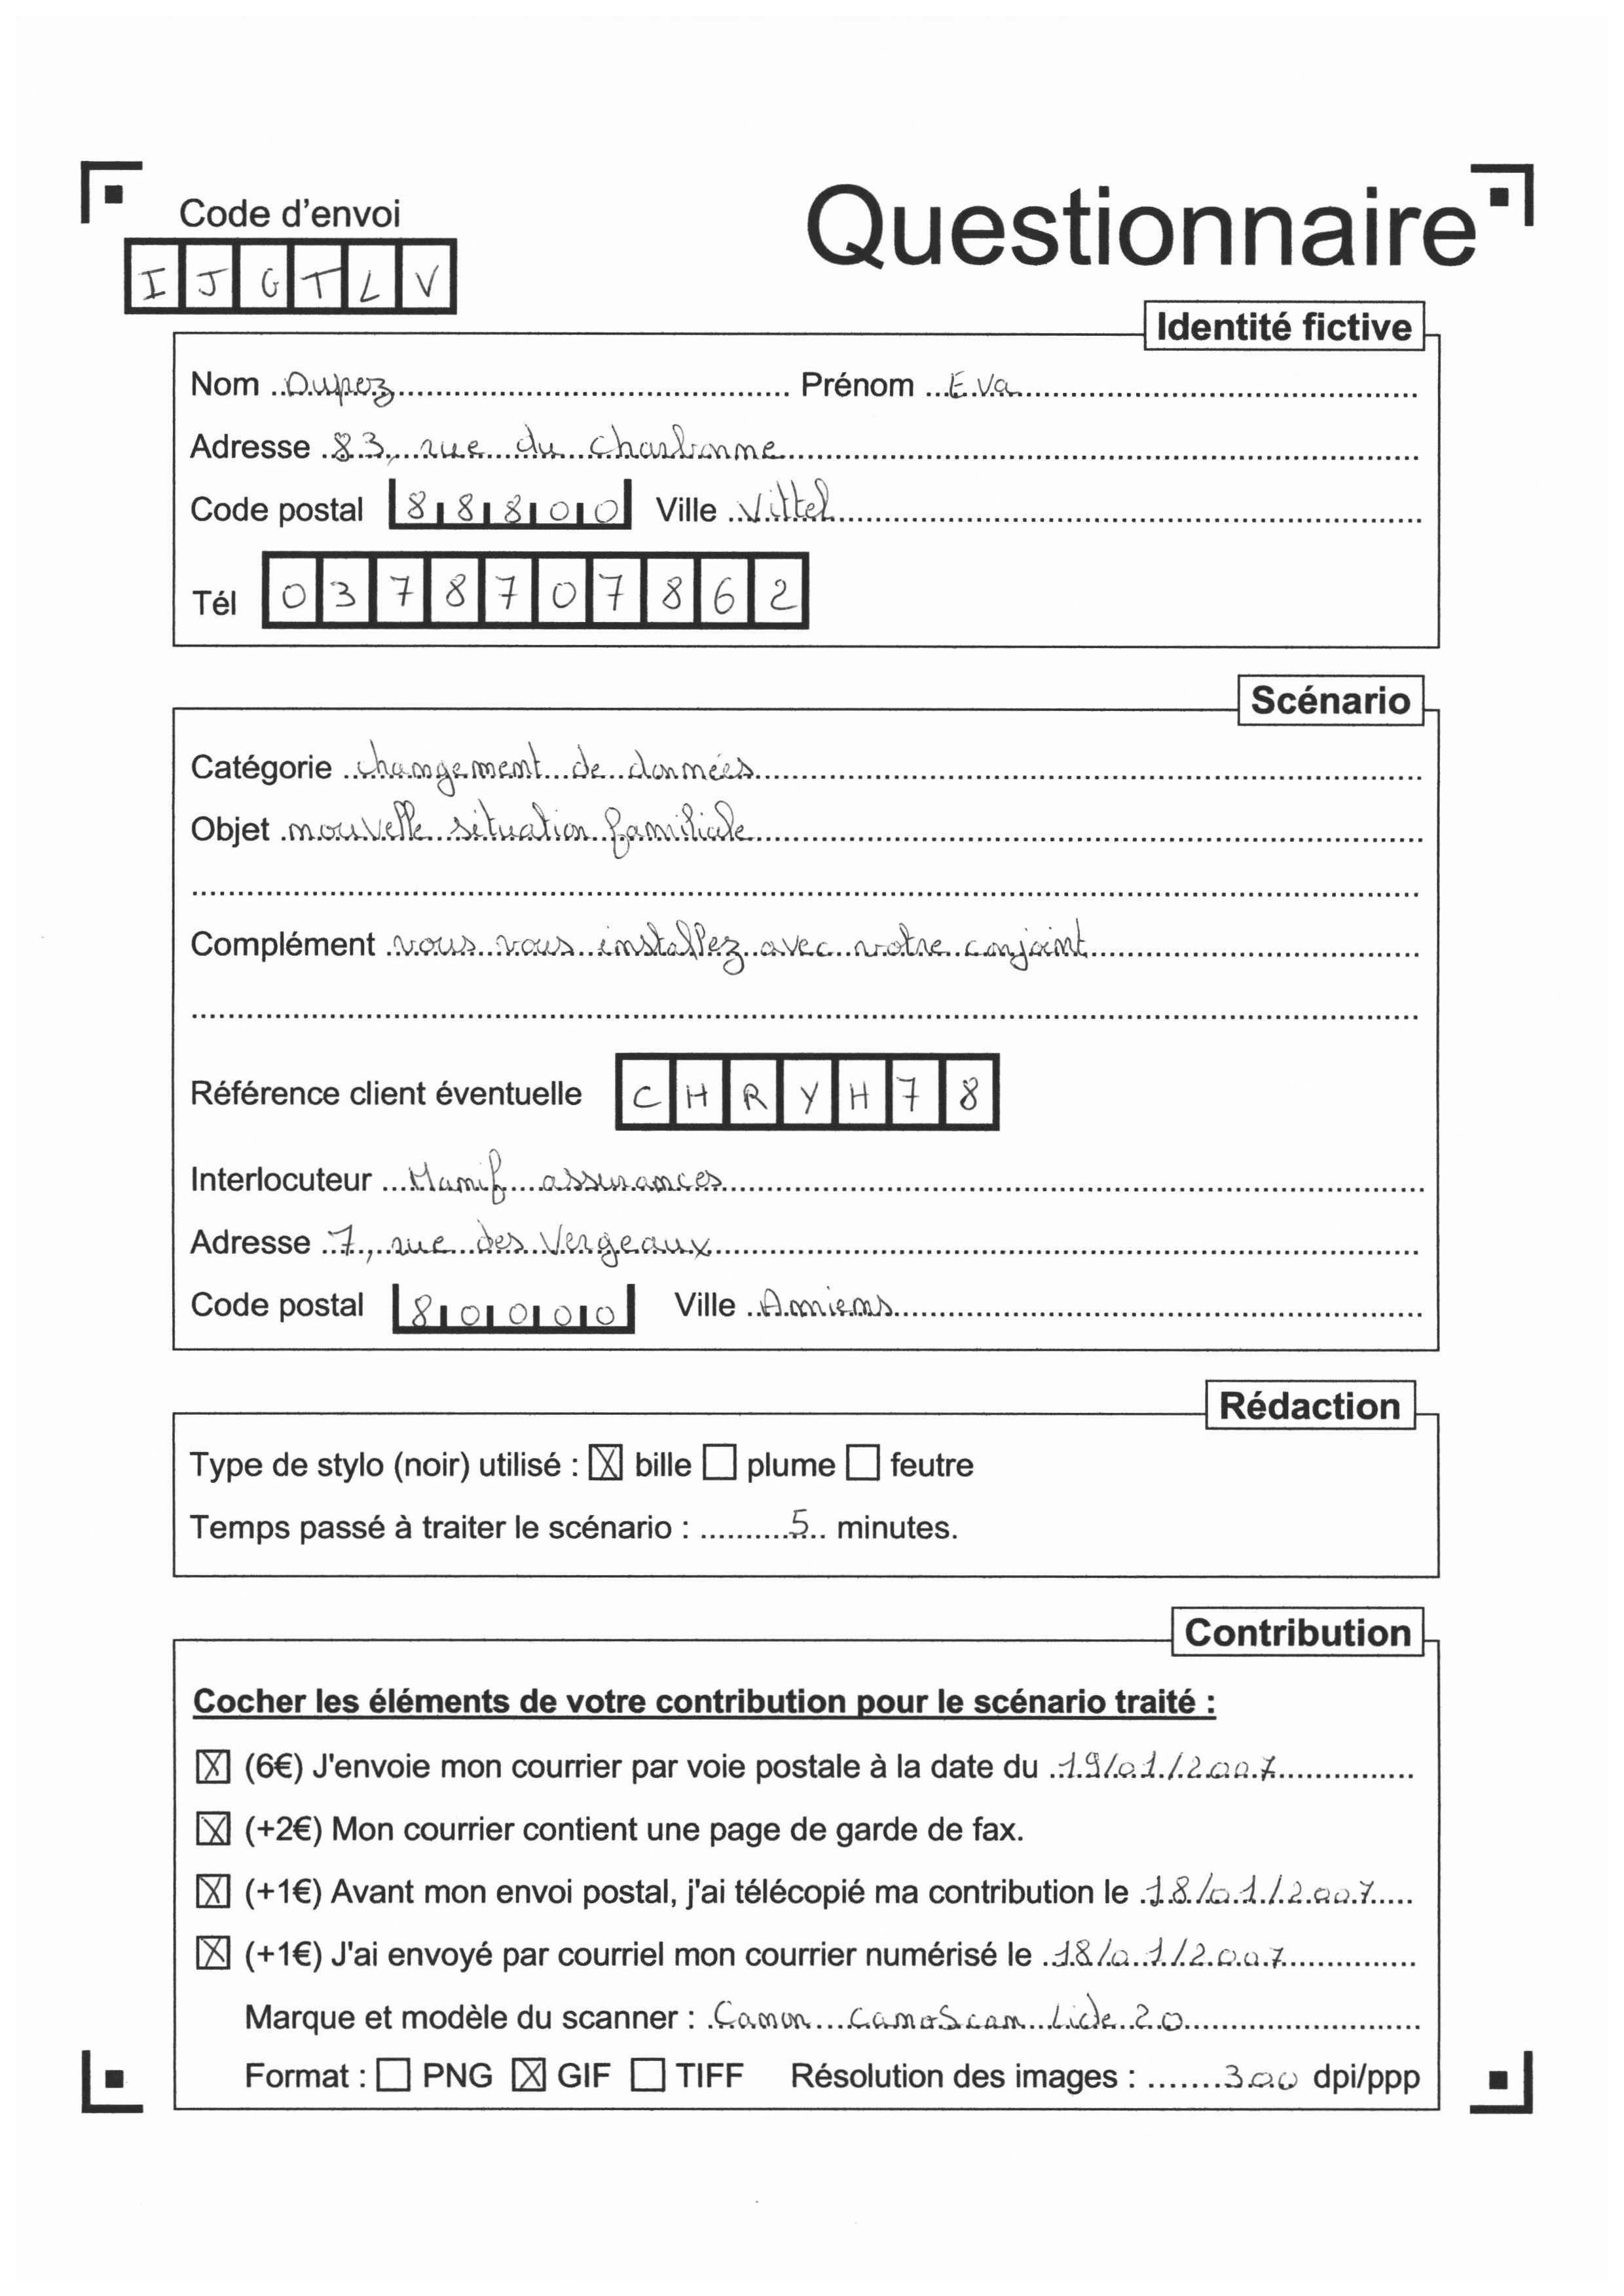 Code d'envoi
Questionnaire
I J G T L V
Identité fictive
Nom Dupez Prénom Eva
Adresse 83, rue du charbonne
Code postal 88800 Ville Vittel
Tél 0378707862
Scénario
Catégorie changement de données
Objet nouvelle situation familiale
Complément vous vous installez avec votre conjoint
Référence client éventuelle C H R Y H 7 8
Interlocuteur Mamif assurances
Adresse 7, rue des Vergeaux
Code postal 80000 Ville Amiens
Rédaction
Type de stylo (noir) utilisé : ☒ bille ☐ plume ☐ feutre
Temps passé à traiter le scénario : 5 minutes.
Contribution
Cocher les éléments de votre contribution pour le scénario traité :
☒ (6€) J'envoie mon courrier par voie postale à la date du 19/01/2007
☒ (+2€) Mon courrier contient une page de garde de fax.
☒ (+1€) Avant mon envoi postal, j'ai télécopié ma contribution le 18/01/2007
☒ (+1€) J'ai envoyé par courriel mon courrier numérisé le 18/01/2007
Marque et modèle du scanner : Canon CanoScan Lide 20
Format : ☐ PNG ☒ GIF ☐ TIFF Résolution des images : 300 dpi/ppp